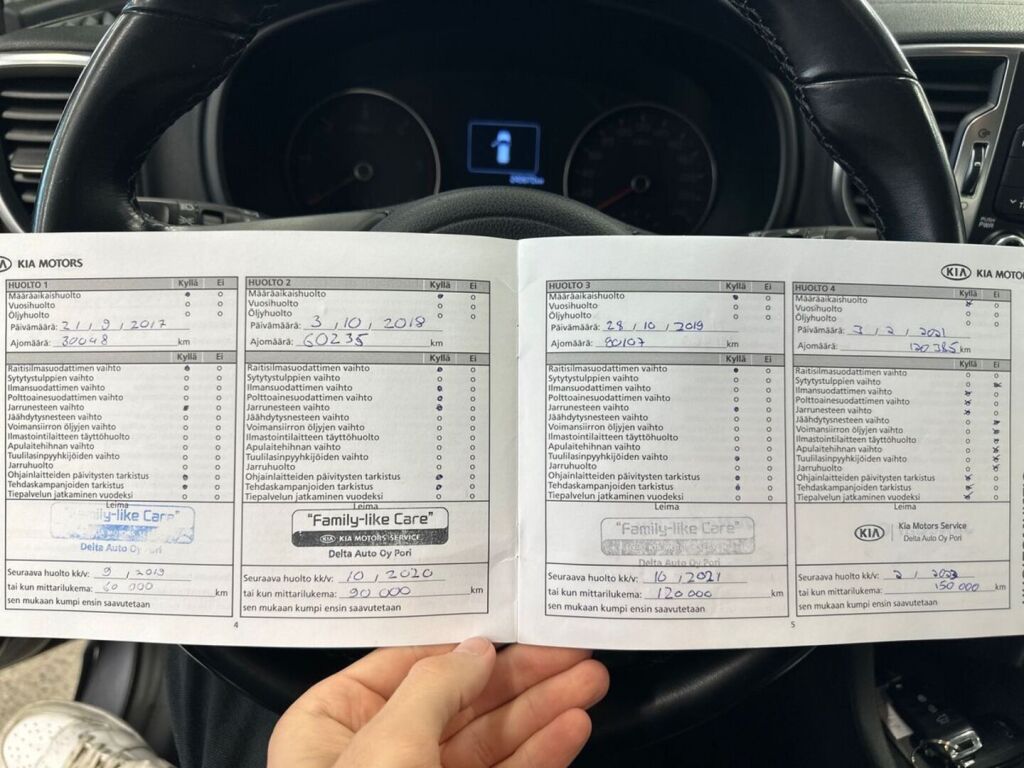 KIA MOTORS
HUOLTO 1 Kyllä Ei
Määräaikaishuolto
Vuosihuolto
Öljyhuolto
Päivämäärä: 21 , 9 , 2017
Ajomäärä: 30048 km
Kyllä Ei
Raitisilmasuodattimen vaihto
Sytytystulppien vaihto
Ilmansuodattimen vaihto
Polttoainesuodattimen vaihto
Jarrunesteen vaihto
Jäähdytysnesteen vaihto
Voimansiirron öljyjen vaihto
Ilmastointilaitteen täyttöhuolto
Apulaitehihnan vaihto
Tuulilasinpyyhkijöiden vaihto
Jarruhuolto
Ohjainlaitteiden päivitysten tarkistus
Tehdaskampanjoiden tarkistus
Tiepalvelun jatkaminen vuodeksi
Leima
ily-like Care"
Delta Auto Oy Pori
Seuraava huolto kk/v: 9 , 2019
tai kun mittarilukema: 60 000 km
sen mukaan kumpi ensin saavutetaan
HUOLTO 2 Kyllä Ei
Määräaikaishuolto
Vuosihuolto
Öljyhuolto
Päivämäärä: 3 , 10 , 2018
Ajomäärä: 60235 km
Kyllä Ei
Raitisilmasuodattimen vaihto
Sytytystulppien vaihto
Ilmansuodattimen vaihto
Polttoainesuodattimen vaihto
Jarrunesteen vaihto
Jäähdytysnesteen vaihto
Voimansiirron öljyjen vaihto
Ilmastointilaitteen täyttöhuolto
Apulaitehihnan vaihto
Tuulilasinpyyhkijöiden vaihto
Jarruhuolto
Ohjainlaitteiden päivitysten tarkistus
Tehdaskampanjoiden tarkistus
Tiepalvelun jatkaminen vuodeksi
Leima
"Family-like Care"
KIA MOTORS SERVICE
Delta Auto Oy Pori
Seuraava huolto kk/v: 10 , 2020
tai kun mittarilukema: 90 000 km
sen mukaan kumpi ensin saavutetaan
4
KIA KIA MOTO
HUOLTO 3 Kyllä Ei
Määräaikaishuolto
Vuosihuolto
Öljyhuolto
Päivämäärä: 28 , 10 , 2019
Ajomäärä: 90107 km
Kyllä Ei
Raitisilmasuodattimen vaihto
Sytytystulppien vaihto
Ilmansuodattimen vaihto
Polttoainesuodattimen vaihto
Jarrunesteen vaihto
Jäähdytysnesteen vaihto
Voimansiirron öljyjen vaihto
Ilmastointilaitteen täyttöhuolto
Apulaitehihnan vaihto
Tuulilasinpyyhkijöiden vaihto
Jarruhuolto
Ohjainlaitteiden päivitysten tarkistus
Tehdaskampanjoiden tarkistus
Tiepalvelun jatkaminen vuodeksi
Leima
"Family-like Care"
Delta Auto Oy Pori
Seuraava huolto kk/v: 10 , 2021
tai kun mittarilukema: 120 000 km
sen mukaan kumpi ensin saavutetaan
HUOLTO 4 Kyllä Ei
Määräaikaishuolto
Vuosihuolto
Öljyhuolto
Päivämäärä: 3 , 2 , 2021
Ajomäärä: 120 385 km
Kyllä Ei
Raitisilmasuodattimen vaihto
Sytytystulppien vaihto
Ilmansuodattimen vaihto
Polttoainesuodattimen vaihto
Jarrunesteen vaihto
Jäähdytysnesteen vaihto
Voimansiirron öljyjen vaihto
Ilmastointilaitteen täyttöhuolto
Apulaitehihnan vaihto
Tuulilasinpyyhkijöiden vaihto
Jarruhuolto
Ohjainlaitteiden päivitysten tarkistus
Tehdaskampanjoiden tarkistus
Tiepalvelun jatkaminen vuodeksi
Leima
KIA Kia Motors Service
Delta Auto Oy Pori
Seuraava huolto kk/v: 2 , 2023
tai kun mittarilukema: 150 000 km
sen mukaan kumpi ensin saavutetaan
5
PUSH
PWR